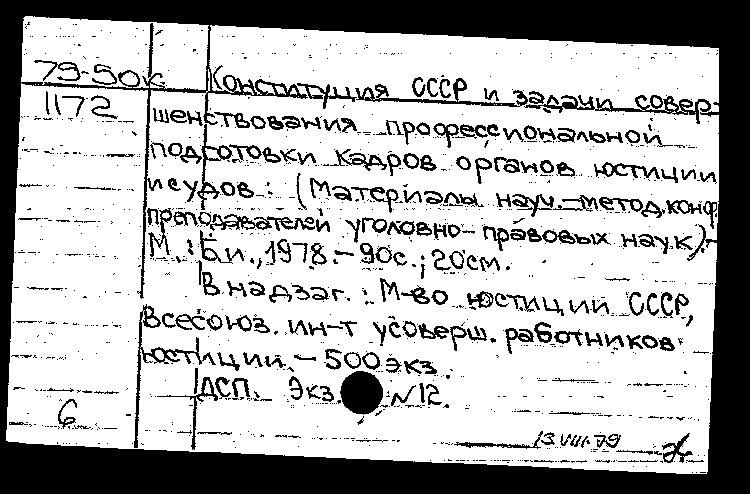 79-50к Конституция СССР и задачи совер-
1172 шенствования профессиональной
подготовки кадров органов юстиции
и судов : (Материалы науч.-метод. конф.
преподавателей уголовно-правовых наук).-
М. : Б.и., 1978.- 90с.; 20см.
В надзаг. : М-во юстиции СССР,
Всесоюз. ин-т усоверш. работников
юстиции. - 500 экз.
ДСП. Экз. N12.
6
13.VIII.79